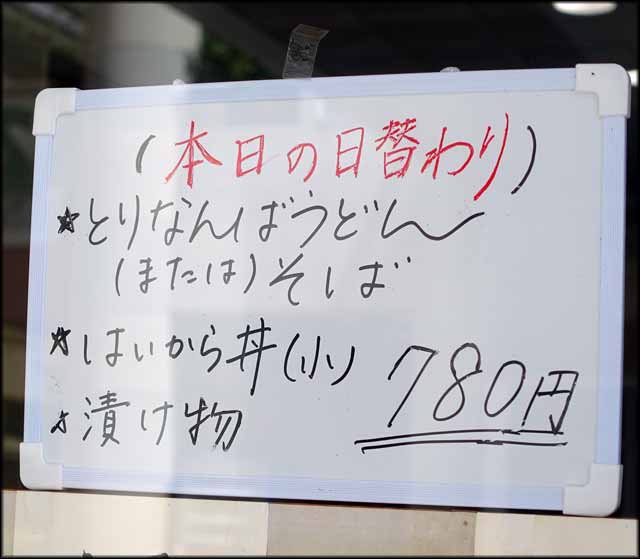 (本日の日替わり)
★とりなんばうどん
(または)そば
★はいから丼(小)
★漬け物
780円